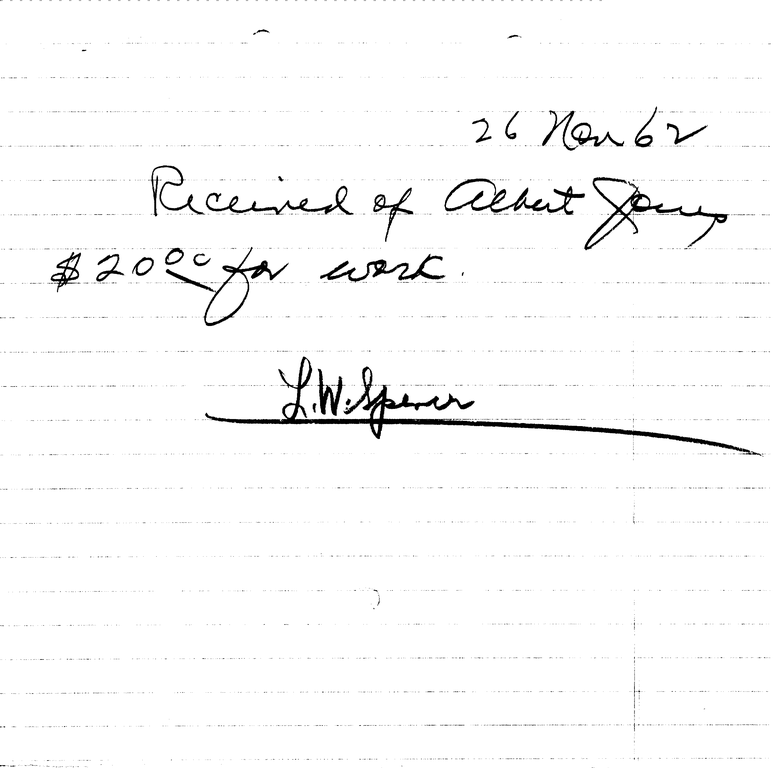 26 Nov 62
Received of Albert Jones
$20.00 for work.
L.W. Spencer